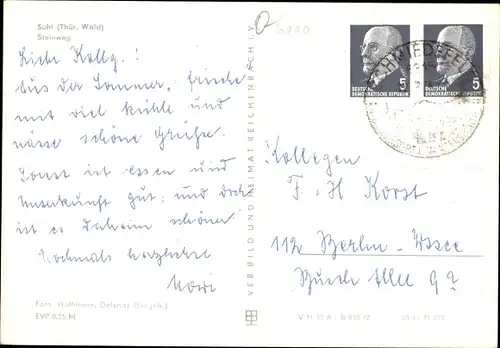 Suhl (Thür. Wald)
Steinweg
Liebe Kollg.!
Aus der Sommerfrische
mit viel Kühle und
Nässe schöne Grüße.
Sonst ist Essen und
Unterkunft gut, und doch
ist es daheim schöner
Nochmals herzlichst
Fam. Hoffmann, Oelsnitz (Erzgeb.)
EVP 0,25 M
VEB BILD UND HEIMAT REICHENBACH I. V.
5
DEUTSCHE
DEMOKRATISCHE REPUBLIK
5
DEUTSCHE
DEMOKRATISCHE REPUBLIK
SCHMIEDEFELD
Kollegen
F. H Korst
112 Berlin-Wssee
Busch Allee 9?
V 11 50 A